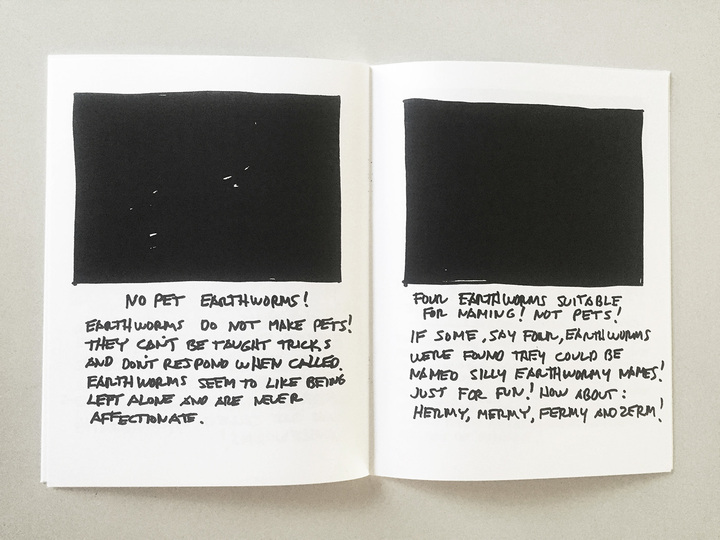 NO PET EARTHWORMS!
EARTHWORMS DO NOT MAKE PETS!
THEY CAN'T BE TAUGHT TRICKS
AND DON'T RESPOND WHEN CALLED.
EARTHWORMS SEEM TO LIKE BEING
LEFT ALONE AND ARE NEVER
AFFECTIONATE.
FOUR EARTHWORMS SUITABLE
FOR NAMING! NOT PETS!
IF SOME, SAY FOUR, EARTHWORMS
WERE FOUND THEY COULD BE
NAMED SILLY EARTHWORMY NAMES!
JUST FOR FUN! HOW ABOUT:
HERMY, MERMY, FERMY AND ZERM!